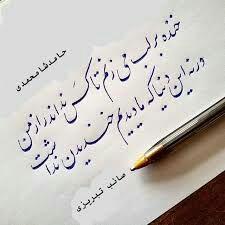 حامد شامحمدی
خنده بر لب می زنم تا کس نداند راز من
ورنه این دنیا که ما دیدیم خندیدن نداشت
صائب تبریزی